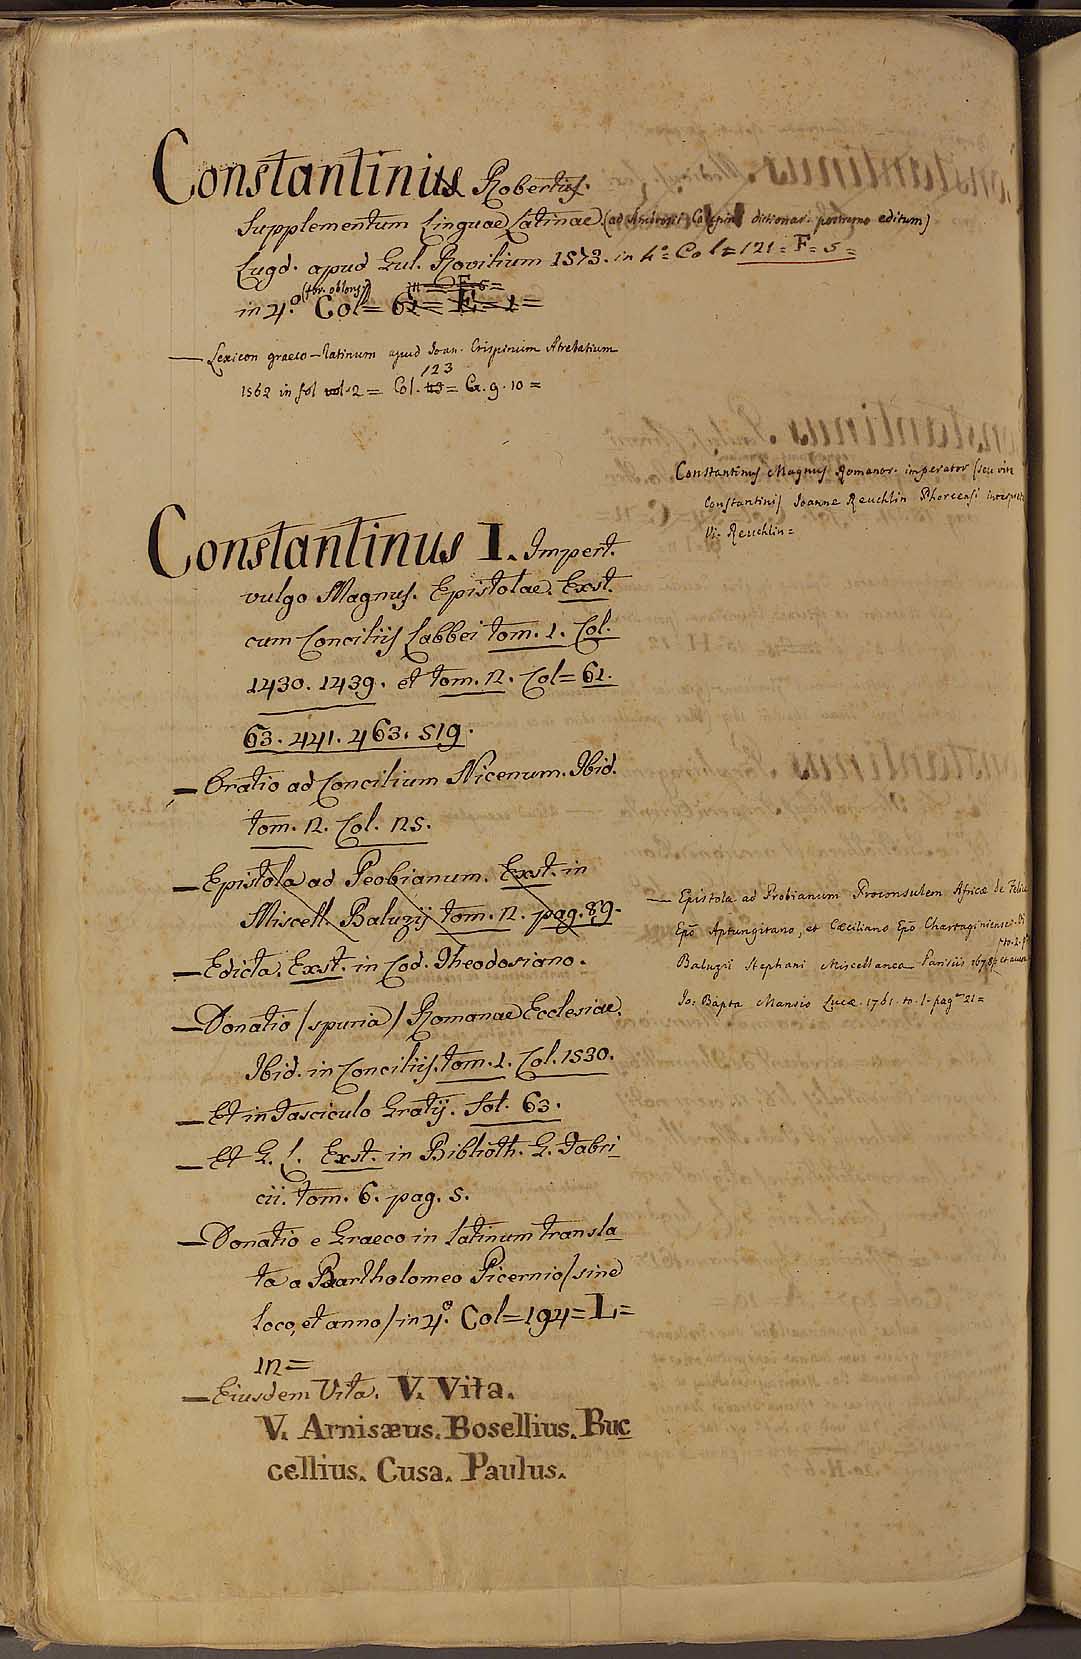 Constantinius Robertus.
Supplementum Linguae Latinae (ad Calepini dictionar. postremo editum)
Lugd. apud Gul. Rovilium 1573. in 4.º Col = 121 = F = 5 =
(for. oblongi) in = F = 6 =
in 4.º Col = 61 = E = 1 =
— Lexicon graeco-latinum apud Joan. Crispinum Atrebatium
123
1562 in fol vol. 2 = Col. 113 = G. 9. 10 =
Constantinus Magnus Romanor. imperator (seu vita
Constantini) Joanne Reuchlin Phorcensi interprete
V. Reuchlin =
Constantinus I. Impert.
vulgo Magnus. Epistolae. Exst.
cum Conciliis Labbei tom. 1. Col.
1430. 1439. et tom. 12. Col = 61.
63. 441. 463. 519.
— Oratio ad Concilium Nicenum. Ibid.
tom. 12. Col. 125.
— Epistola ad Peobianum. Exst. in
Miscell. Baluzij tom. 12. pag. 89.
— Epistola ad Probianum Proconsulem Africæ de Felice
Epõ Aptungitano, et Cæciliano Epõ Chartaginiensi.
to. 2. p.
Baluzii Stephani Miscellanea Parisiis 1678
Jo: Bapta Mansio Lucæ. 1761. to. 1. pag. 21 =
— Edicta. Exst. in Cod. Theodosiano.
— Donatio (spuria) Romanae Ecclesiae.
Ibid. in Conciliis. tom. 1. Col. 1530.
— Et in Fasciculo Gratij. fol. 63.
— Et G. L. Exst. in Biblioth. G. Fabri
cii. tom. 6. pag. 5.
— Donatio e Graeco in latinum transla
ta a Bartholomeo Picernio (sine
loco, et anno) in 4.º Col = 194 = L =
12 =
— Eiusdem Vita. V. Vita.
V. Arnisæus. Bosellius. Buc
cellius. Cusa. Paulus.